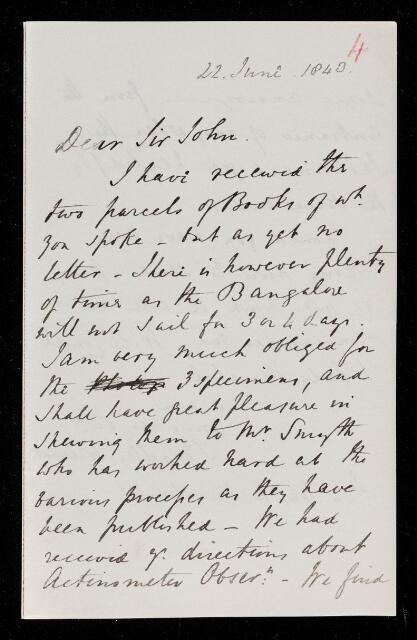 4
22. June. 1843.
Dear Sir John.
I have received the
two parcels of Books of wh.
you spoke - but as yet no
letter - There is however plenty
of time as the Bangalore
will not sail for 3 or 4 days.
I am very much obliged for
the 3 specimens, and
shall have great pleasure in
shewing them to Mr. Smyth
who has worked hard at the
various processes as they have
been published - We had
received yr. directions about
Actinometer Obsern. - We find